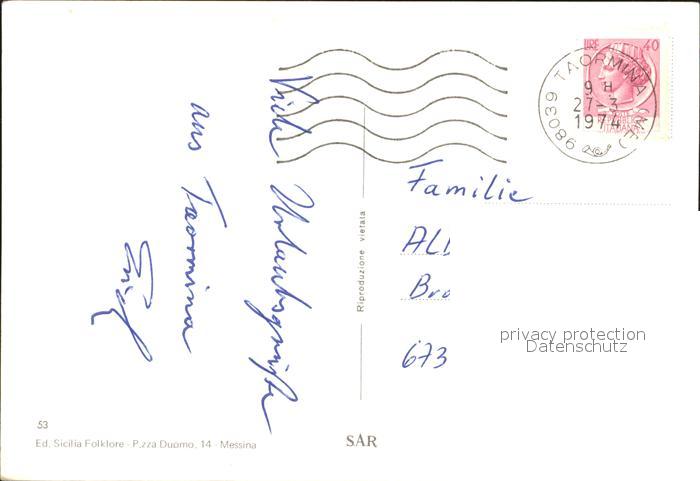 Viele Urlaubsgrüße
aus Taormina
LIRE 40
98039 TAORMINA (ME)
9 H
27-3
1974
Familie
AL
Bro
673
Riproduzione vietata
privacy protection
Datenschutz
53
Ed. Sicilia Folklore - P.zza Duomo, 14 - Messina
SAR